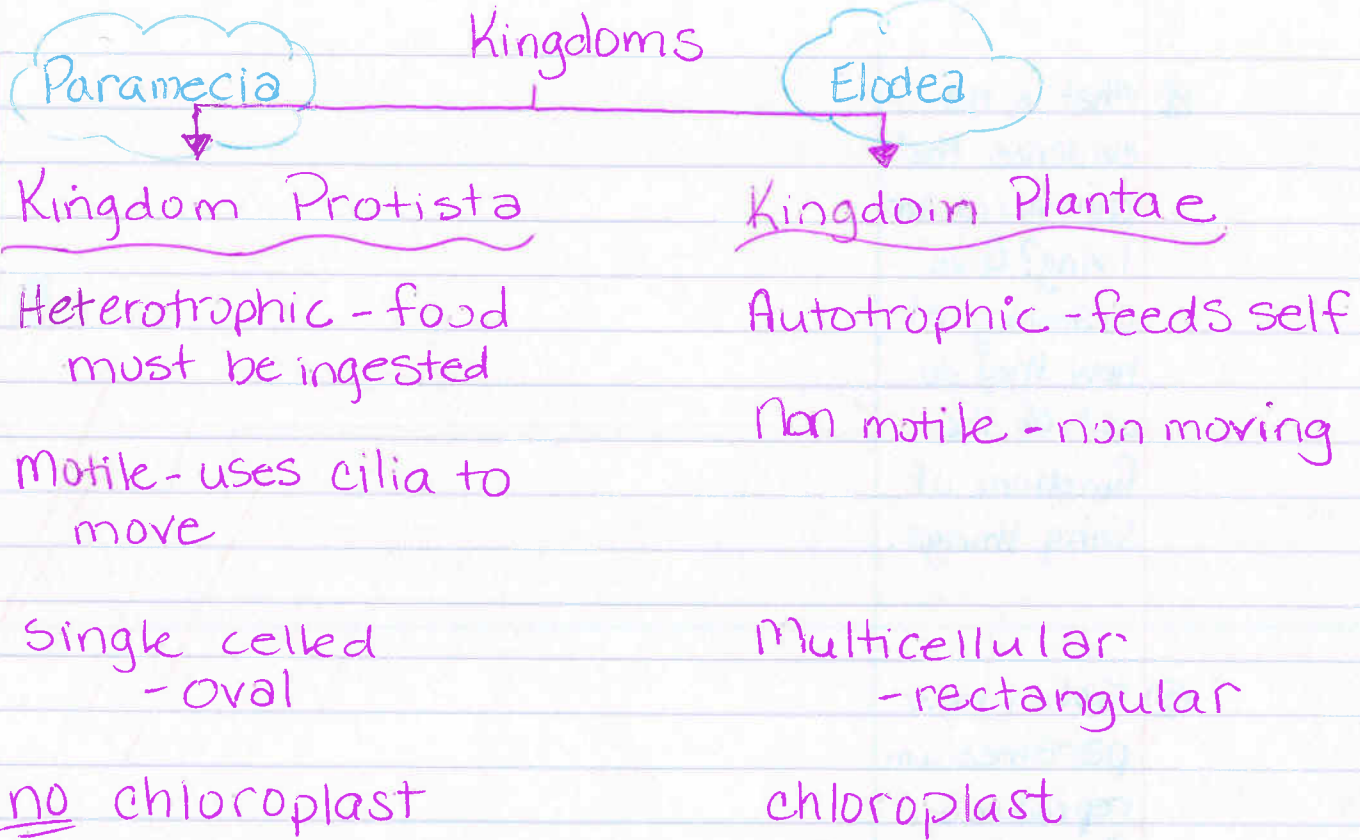 Kingdoms
Paramecia
Elodea
Kingdom Protista
Heterotrophic - food
must be ingested
Motile - uses cilia to
move
Single celled
- oval
no chloroplast
Kingdom Plantae
Autotrophic - feeds self
Non motile - non moving
Multicellular
- rectangular
chloroplast